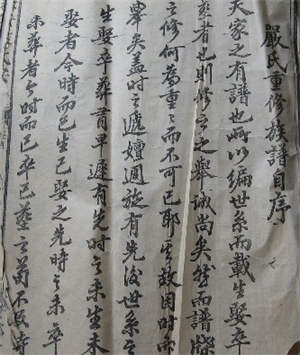 嚴氏重修族譜自序
夫家之有譜也所以編世系而載生娶卒
葬者也則修之之舉誠尚矣然而譜牒
之修何為重之而不可已耶其故因時而
舉矣蓋時之遞嬗週旋有先後世系之
生娶卒葬有早遲有先時之未生未
娶者今時而已生已娶之先時之未卒
未葬者今時而已卒已葬之苟不及時